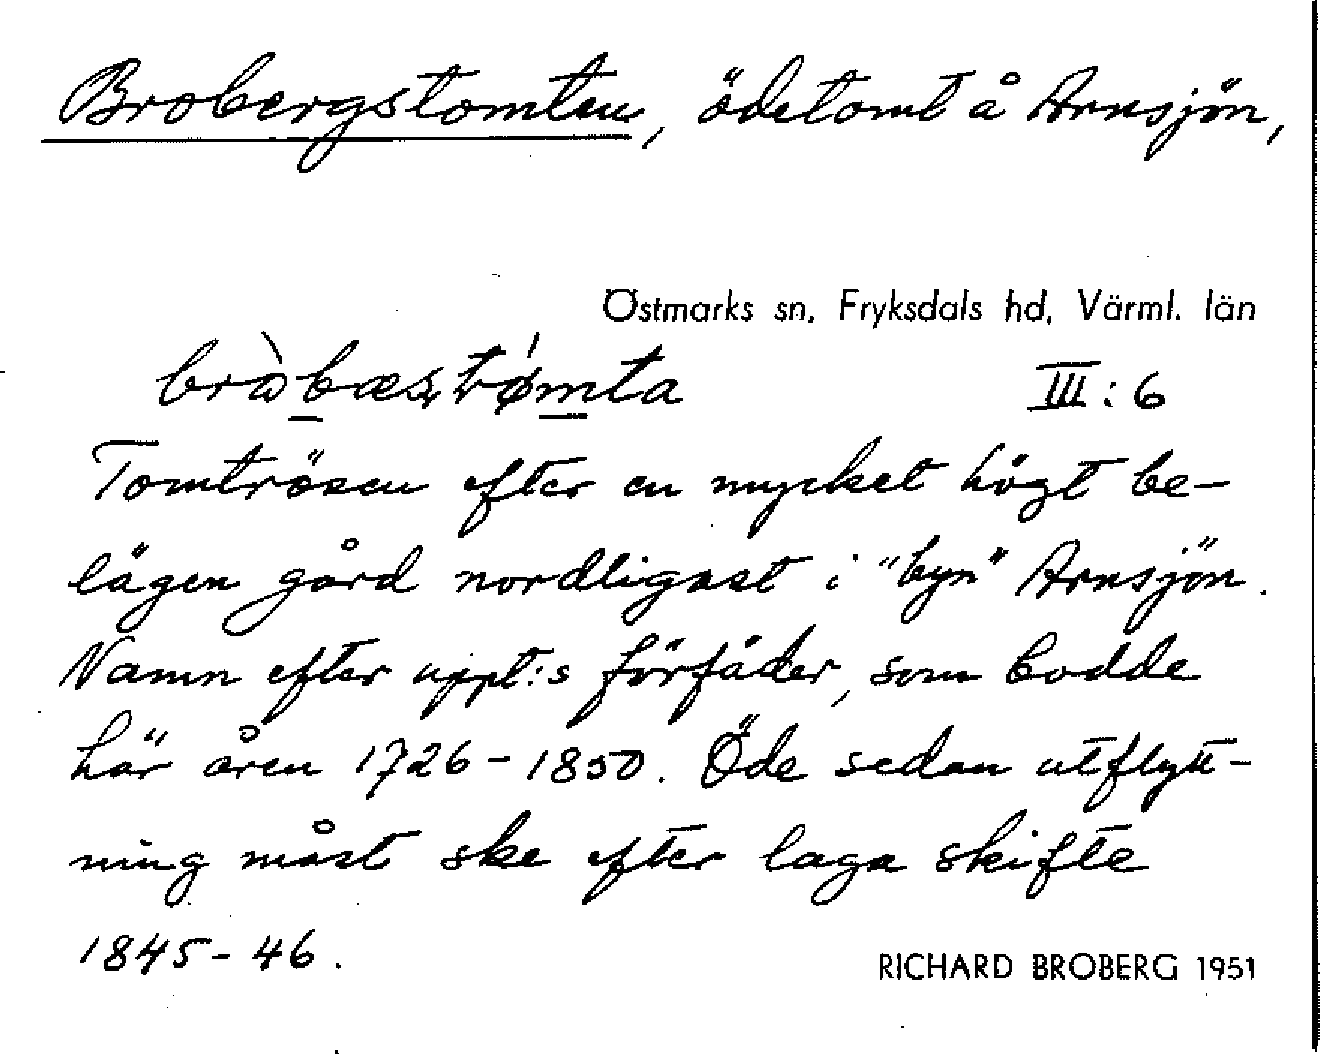 Brobergstomten, ödetomt å Arnsjön,
Östmarks sn, Fryksdals hd, Värml. län
bròbæstǿmta III:6
Tomtrösen efter en mycket högt be-
lägen gård nordligast i "byn" Arnsjön.
Namn efter uppt:s förfäder, som bodde
här åren 1726-1850. Öde sedan utflytt-
ning måst ske efter laga skifte
1845-46.
RICHARD BROBERG 1951